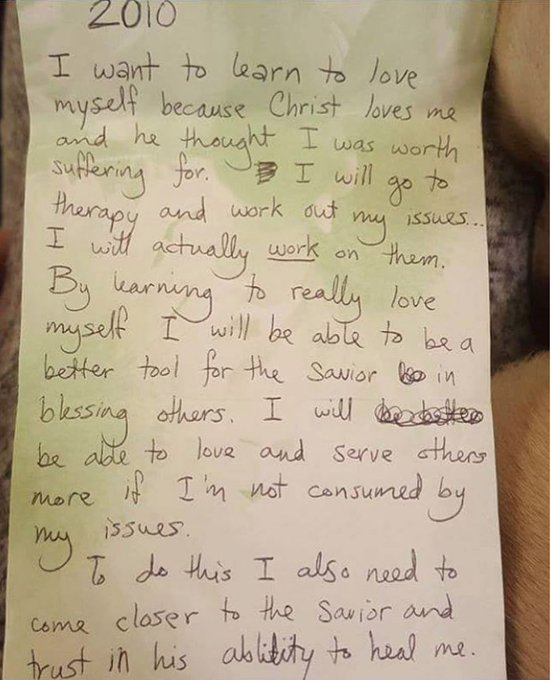 2010
I want to learn to love
myself because Christ loves me
and he thought I was worth
suffering for. I will go to
therapy and work out my issues...
I will actually work on them.
By learning to really love
myself I will be able to be a
better tool for the Savior in
blessing others. I will
be able to love and serve others
more if I'm not consumed by
my issues.
To do this I also need to
come closer to the Savior and
trust in his ablitity to heal me.